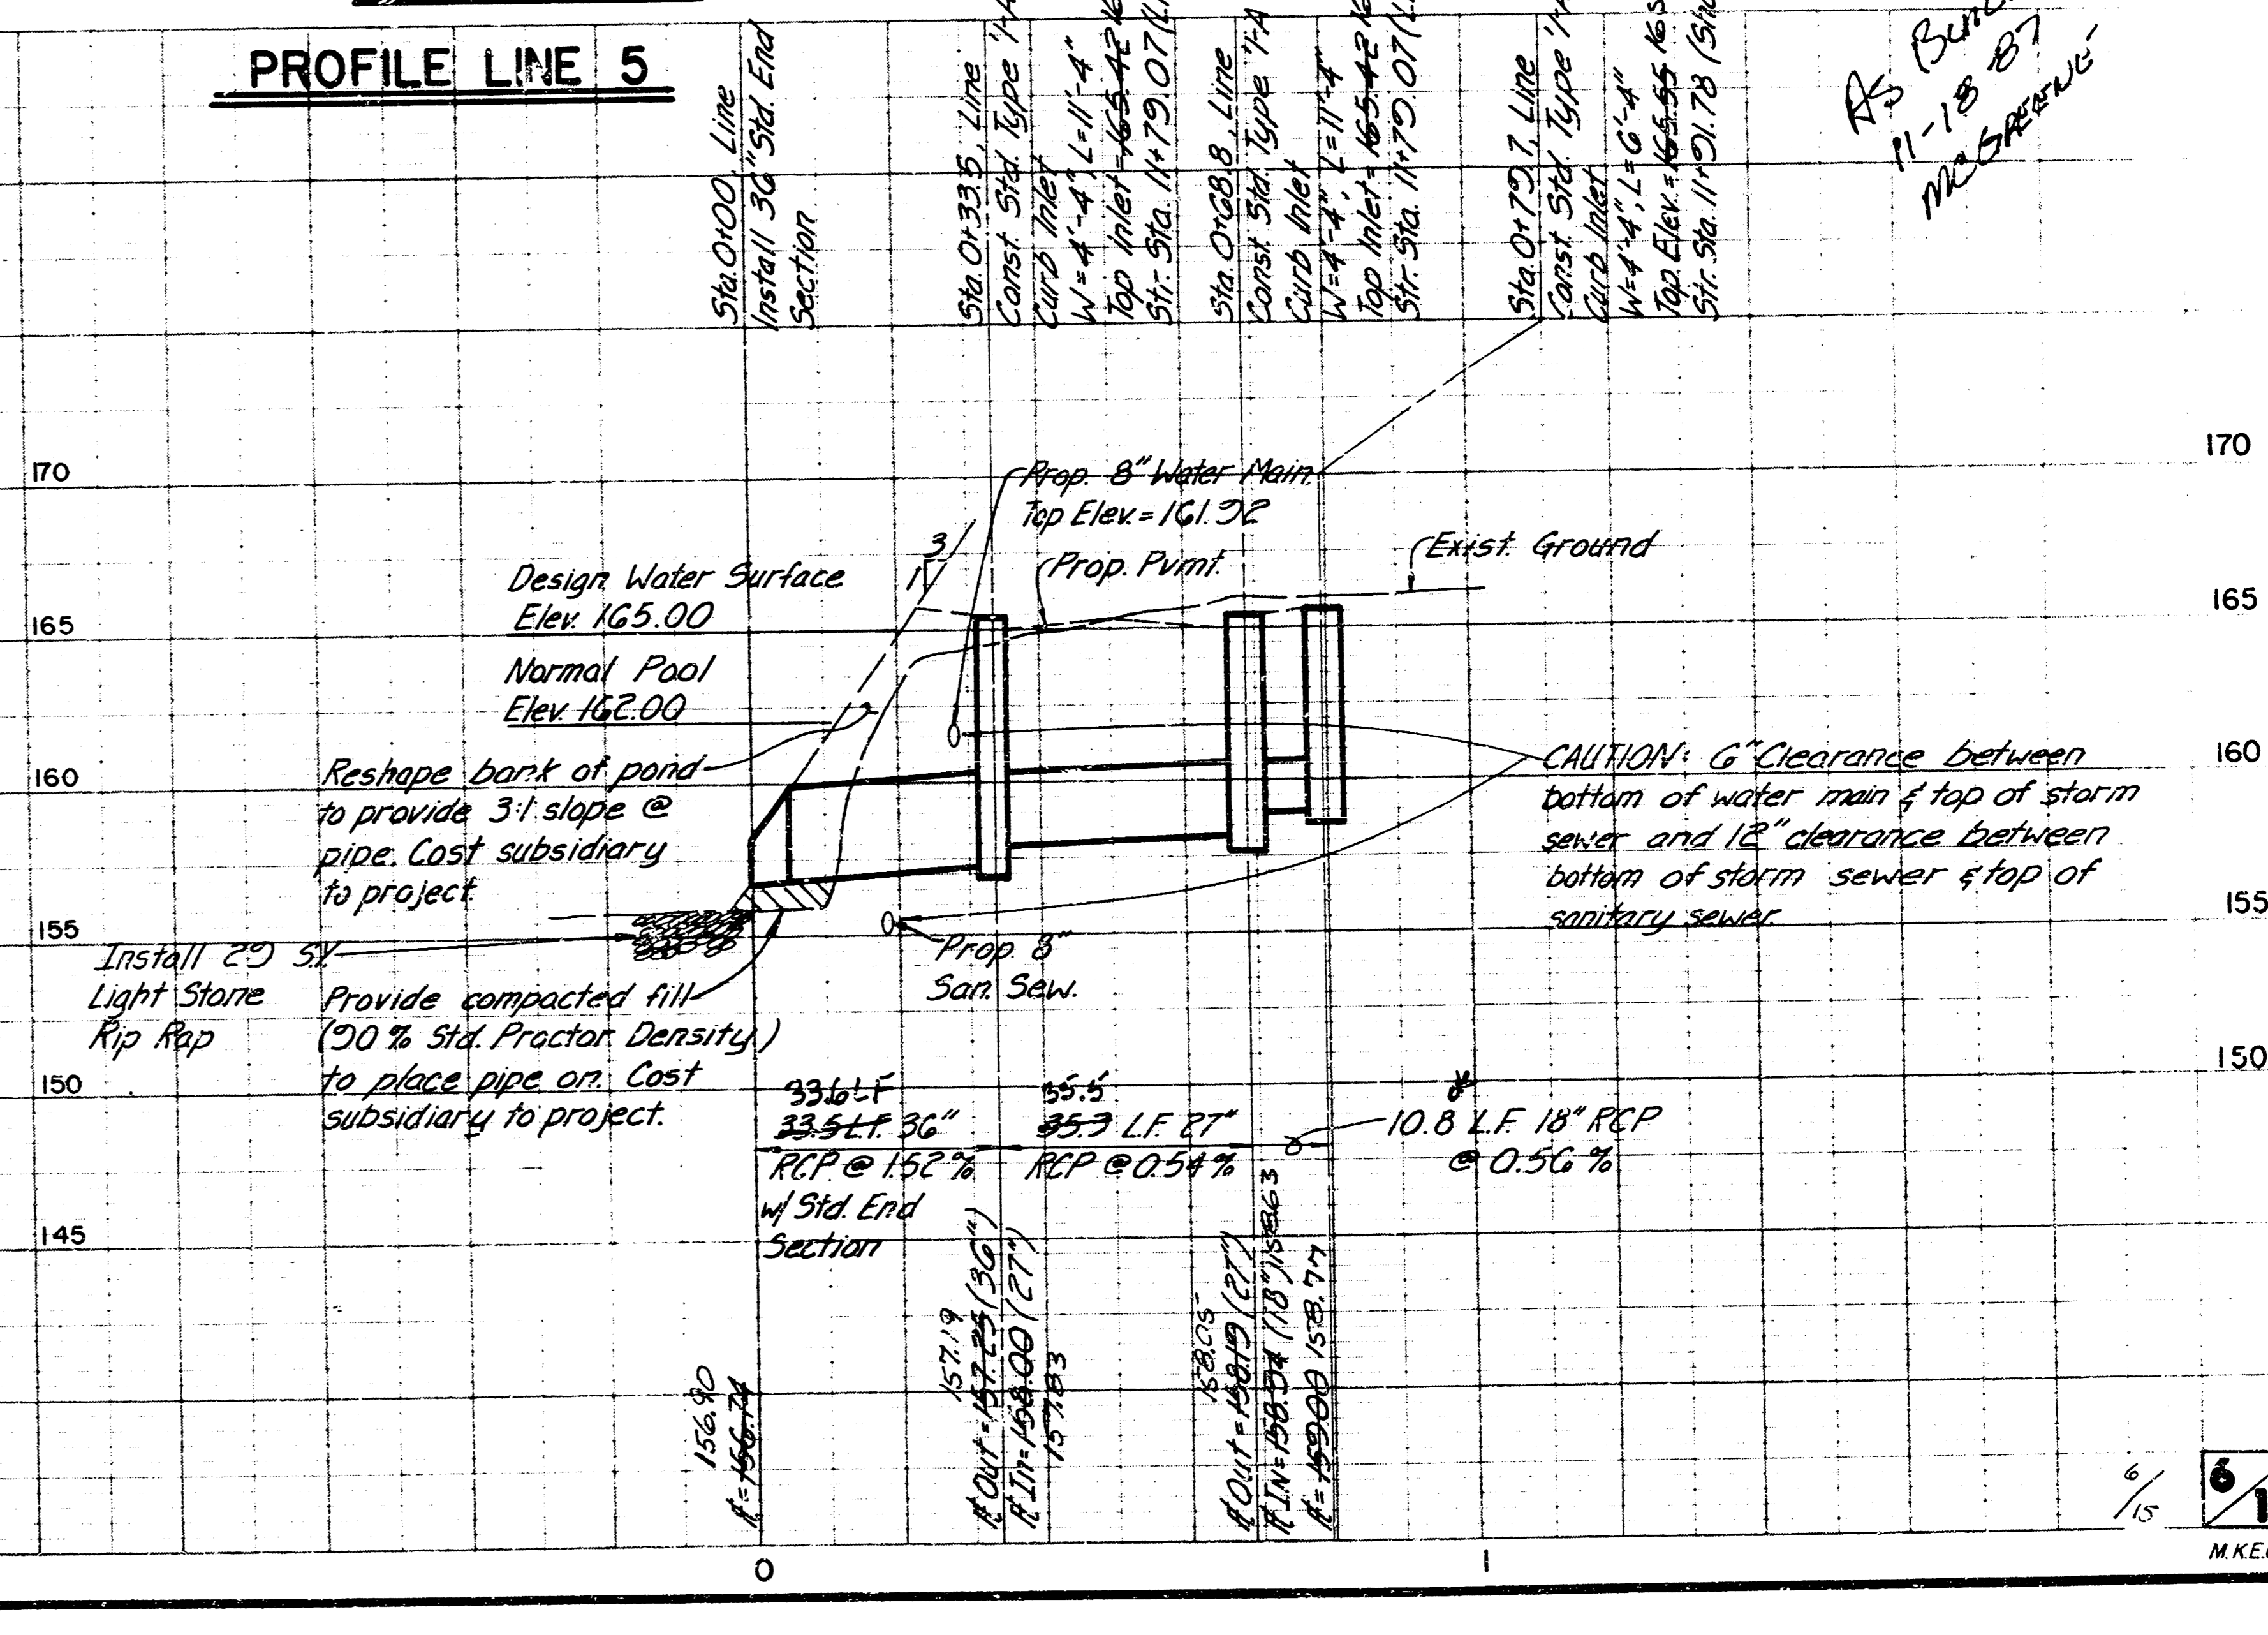 PROFILE LINE 5
Sta. 0+00, Line
Install 36" Std. End
Section
Sta. 0+33.5, Line
Const. Std. Type
Curb Inlet
W=4'-4", L=11'-4"
Top Inlet=165.42
Str. Sta. 11+79.07
Sta. 0+68.8, Line
Const. Std. Type
Curb Inlet
W=4'-4", L=11'-4"
Top Inlet=165.42
Str. Sta. 11+79.07
Sta. 0+79.7, Line
Const. Std. Type
Curb Inlet
W=4'-4", L=6'-4"
Top Elev.=165.55
Str. Sta. 11+91.78
As
11-18-87
170
170
165
165
160
160
155
155
150
150
145
Prop. 8" Water Main
Top Elev.=161.92
3
1
Prop. Pvmt.
Exist. Ground
Design Water Surface
Elev. 165.00
Normal Pool
Elev. 162.00
Reshape bank of pond
to provide 3:1 slope @
pipe. Cost subsidiary
to project.
CAUTION: 6" Clearance between
bottom of water main & top of storm
sewer and 12" clearance between
bottom of storm sewer & top of
sanitary sewer.
Install 29 S.Y.
Light Stone
Rip Rap
Provide compacted fill
(90% Std. Proctor Density)
to place pipe on. Cost
subsidiary to project.
Prop. 8"
San. Sew.
33.6 LF
33.5 L.F. 36"
RCP @ 1.52%
w/ Std. End
Section
35.5
35.3 L.F. 27"
RCP @ 0.54%
10.8 L.F. 18" RCP
@ 0.56%
156.90
℄=156.74
157.19
℄ Out=157.25 (36")
℄ In=158.00 (27")
157.83
158.05
℄ Out=158.19 (27")
℄ IN=158.94 (18") 158.63
℄=159.00 158.77
0
1
6/15
6
M.K.E.